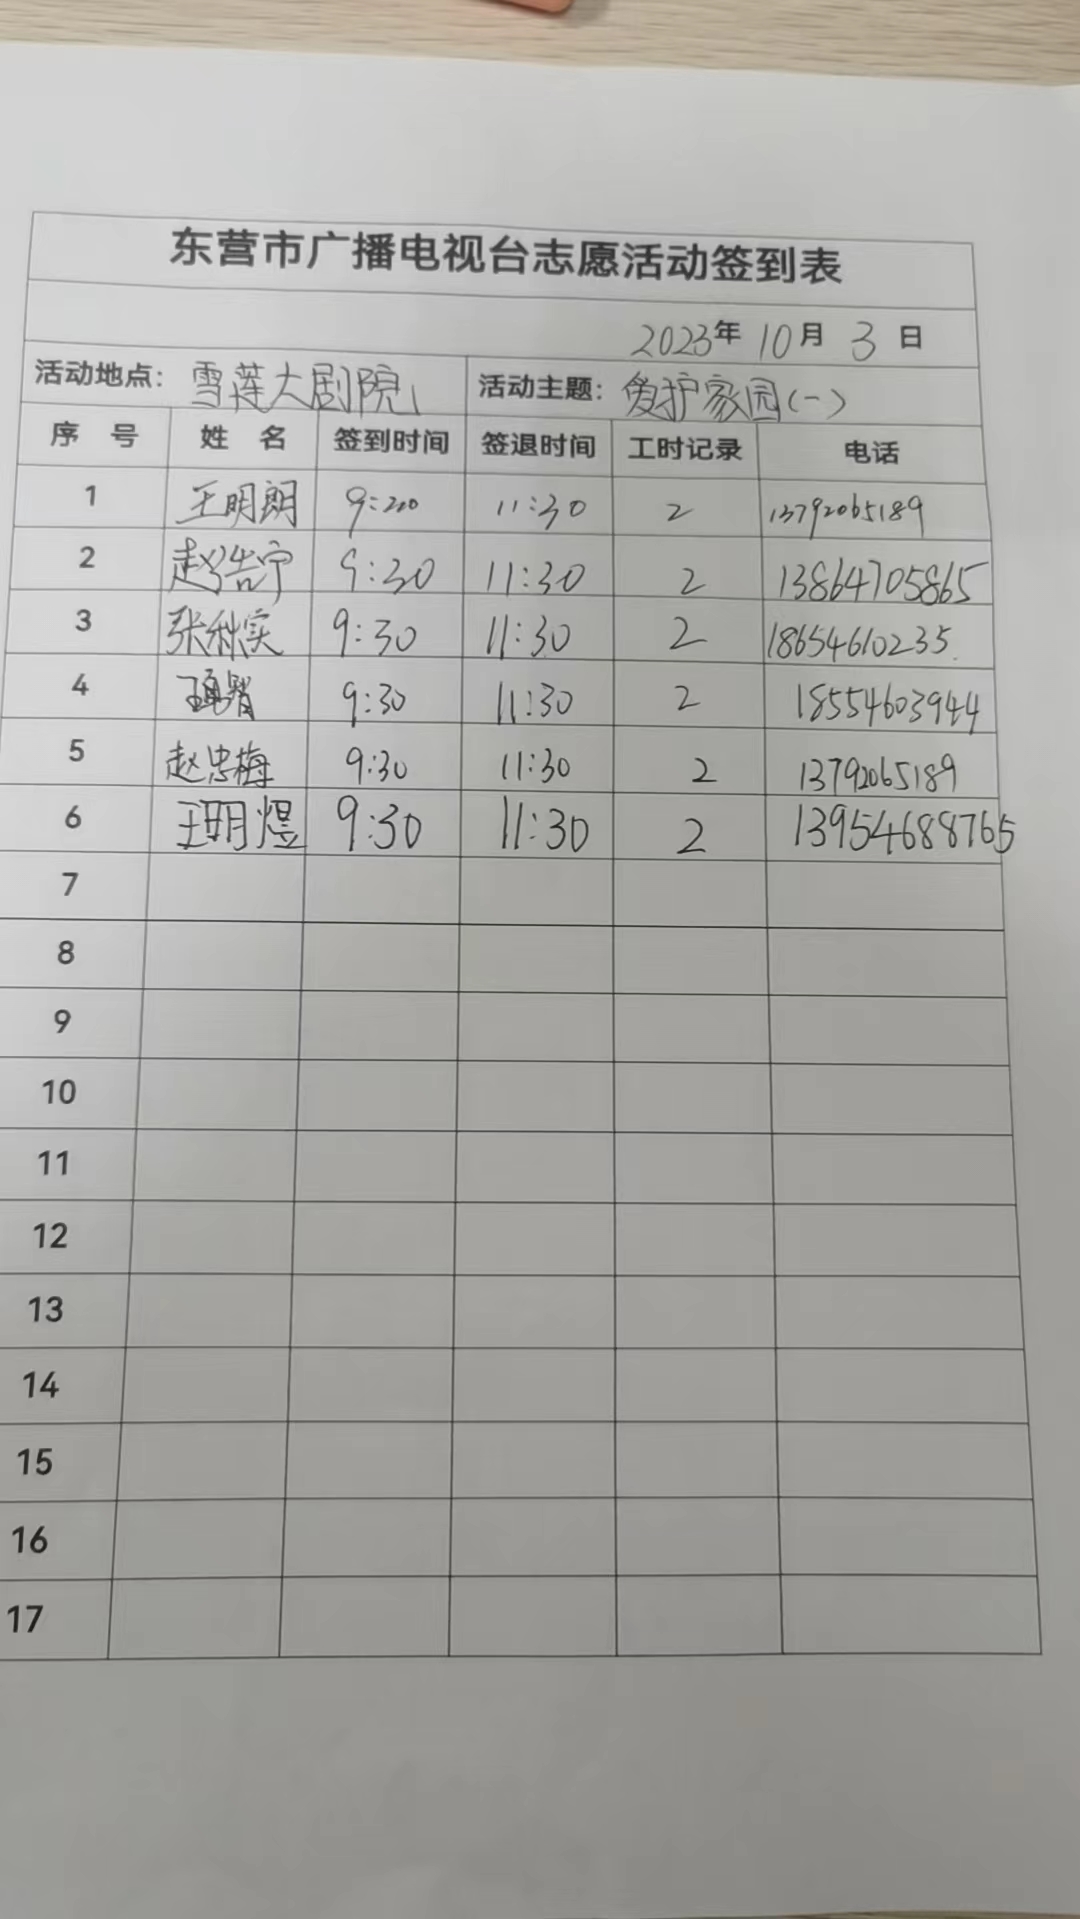 东营市广播电视台志愿活动签到表
2023年 10月 3日
活动地点：雪莲大剧院 活动主题：爱护家园(一)
序 号 姓 名 签到时间 签退时间 工时记录 电话
1 王明朗 11:30 2 13792065189
2 赵浩宁 9:30 11:30 2 13864705865
3 张秋实 9:30 11:30 2 18654610235
4 9:30 11:30 2 18554603944
5 赵忠梅 9:30 11:30 2 13792065189
6 王玥煜 9:30 11:30 2 13954688765
7
8
9
10
11
12
13
14
15
16
17